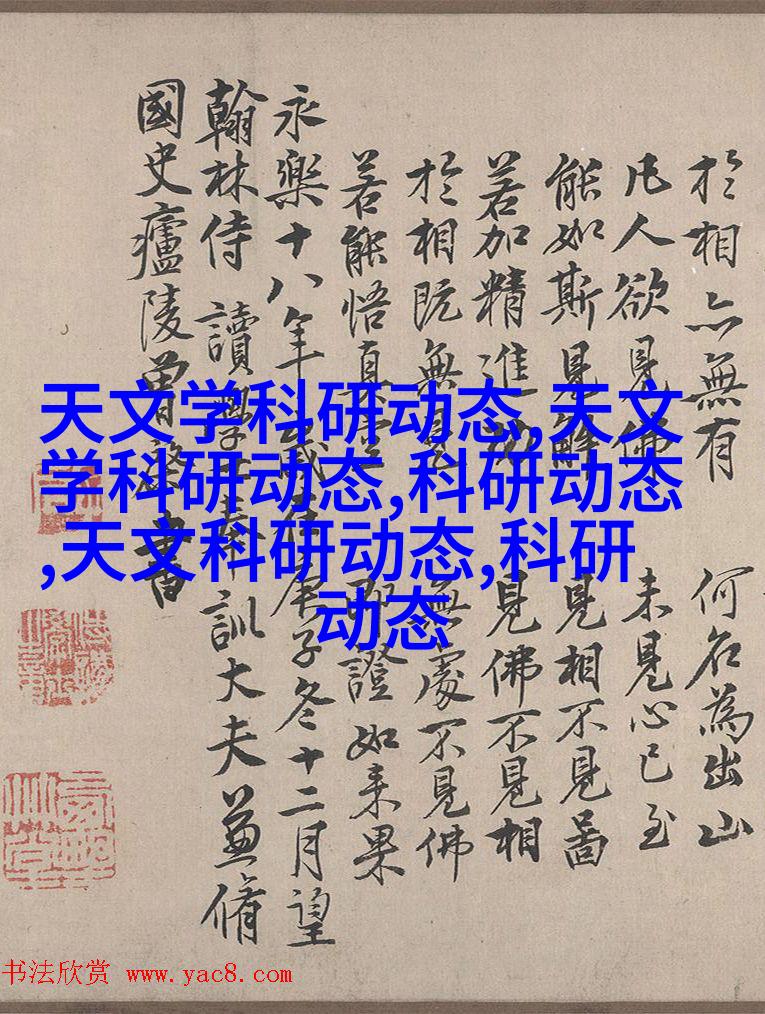 於相亦無有 何名為出山
凡人欲見佛 未見心已至
能如斯見解 見相不見啚
若加精進功 見佛不見相
於相既無見 無處不見佛
若能悟真空 即證如来果
永樂十八年歲在庚子冬十二月望
翰林侍讀學士奉訓大夫兼脩
國史廬陵曾棨書
天文学科研动态,天文
学科研动态,科研动态
,天文科研动态,科研
动态
书法欣赏 www.yac8.com